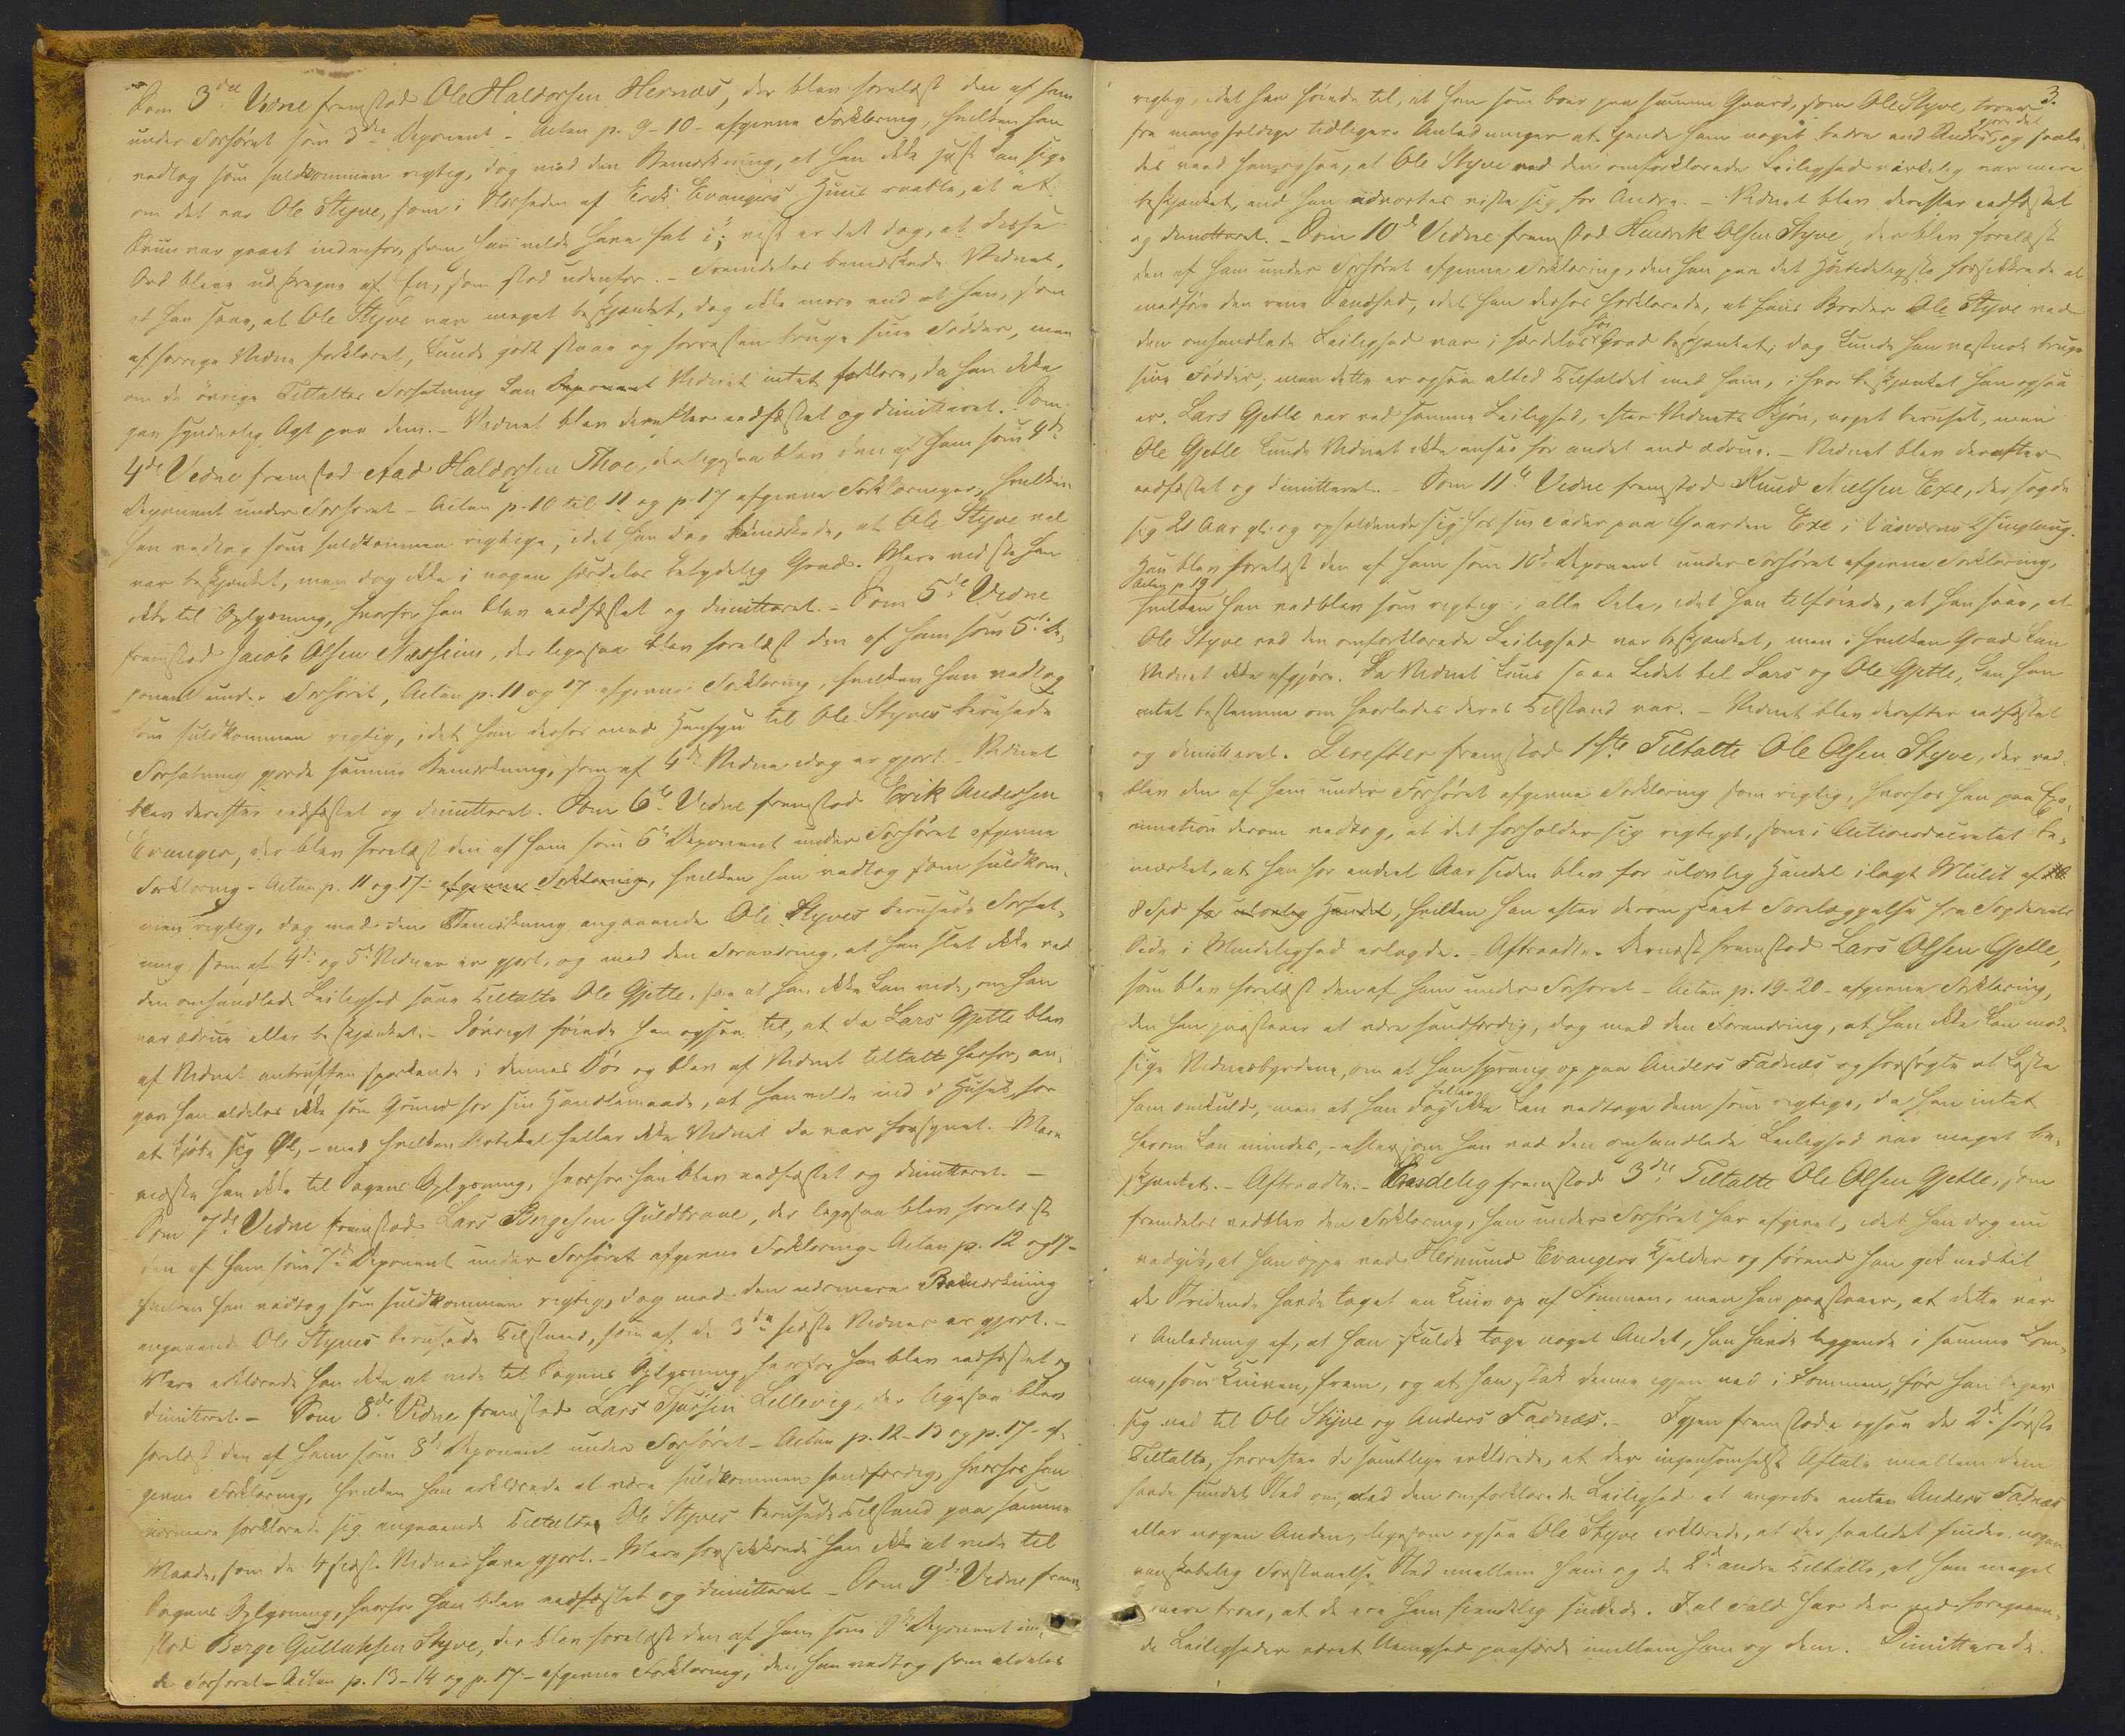 Som 3die Vidne fremstod Ole Haldorsen Hernæs, der blev forelæst den af ham
under Forhöret som 3die Deponent - Acten p. 9-10 - afgivne Forklaring, hvilken han
vedtog som fuldkommen rigtig, dog med den Bemærkning, at han ikke just kan sige
om det var Ole Styve, som i Nærheden af Erik Evangers Huus raabte, at
var gaaet indenfor, som han vilde have fat i; vist er det dog, at disse
Ord bleve udsagte af En, som stod udenfor. - Fremdeles bemærkede Vidnet,
at han saae, at Ole Styve var meget beskjænket, dog ikke mere end at han, som
af forrige Vidne forklaret, kunde godt staae og forresten bruge sine Födder, men
om de övrige Tiltaltes Forfatning kan Deponent Vidnet intet forklare, da han ikke
gav synderlig Agt paa dem. - Vidnet blev derefter eedfæstet og dimitteret. Som
4de Vidne fremstod Aad Haldorsen Thoe, der ligesaa blev den af ham som 4de
Deponent under Forhöret - Acten p. 10 til 11 og p. 17 afgivne Forklaringer, hvilken
han vedtog som fuldkommen rigtige, idet han dog bemærkede, at Ole Styve vel
var beskjænket, men dog ikke i nogen særdeles betydelig Grad. Mere vidste han
ikke til Oplysning, hvorfor han blev eedfæstet og dimitteret. - Som 5te Vidne
fremstod Jacob Olsen Næsheim, der ligesaa blev forelæst den af ham som 5te De-
ponent under Forhöret, Acten p. 11 og 17 afgivne Forklaring, hvilken han vedtog
som fuldkommen rigtig, idet han derhos med Hensyn til Ole Styves berusede
Forfatning gjorde samme Bemærkning, som af 4de Vidne idag er gjort. - Vidnet
blev derefter eedfæstet og dimitteret. Som 6te Vidne fremstod Erik Andersen
Evanger, der blev forelæst den af ham som 6te Deponent under Forhöret afgivne
Forklaring - Acten p. 11 og 17 - afgivne Forklaring, hvilken han vedtog som fuldkom-
men rigtig, dog med den Bemærkning angaaende Ole Styves berusede Forfat-
ning, som af 4de og 5te Vidner er gjort, og med den Forandring, at han slet ikke ved
den omhandlede Leilighed saae Tiltalte Ole Gjelle, saa at han ikke kan vide, om han
var ædrue eller beskjænket. - Iövrigt föiede han ogsaa til, at da Lars Gjelle blev
af Vidnet antruffen sparkende i dennes Dör og blev af Vidnet tiltalt herfor, an-
gav han aldeles ikke som Grund for sin Handlemaade, at han vilde ind i Huset for
at kjöbe sig Öl, - med hvilken Artikel heller ikke Vidnet da var forsynet. Mere
vidste han ikke til Sagens Oplysning, hvorfor han blev eedfæstet og dimitteret. -
Som 7de Vidne fremstod Lars Bergesen Guldbraae, der ligesaa blev forelæst
den af ham som 7de Deponent under Forhöret afgivne Forklaring - Acten p. 12 og 17 -
hvilken han vedtog som fuldkommen rigtig, dog med den nærmere Bemærkning
angaaende Ole Styves berusede Tilstand, som af de 3de sidste Vidner er gjort. -
Mere erklærede han ikke at vide til Sagens Oplysning, hvorfor han blev eedfæstet og
dimitteret. - Som 8de Vidne fremstod Lars Sjursen Lillevig, der ligesaa blev
forelæst den af ham som 8de Deponent under Forhöret - Acten p. 12-13 og p. 17 - af-
givne Forklaring, hvilken han erklærede at være fuldkommen sandfærdig, hvorhos han
nærmere forklarede sig angaaende Tiltalte Ole Styves berusede Tilstand paa samme
Maade, som de 4 sidste Vidner have gjort. - Mere forsikkrede han ikke at vide til
Sagens Oplysning, hvorfor han blev eedfæstet og dimitteret. - Som 9de Vidne frem-
stod Berge Gullaksen Styve, der blev forelæst den af ham som 9de Deponent un-
der Forhöret - Acten p. 13-14 og p. 17 - afgivne Forklaring, den han vedtog som aldeles
3.
rigtig, idet han föiede til, at han som boer paa samme Gaard, som Ole Styve, troer
gjöre det
fra mangfoldige tidligere Anledninger at kjende ham noget bedre end Andre, og saale-
des veed han ogsaa, at Ole Styve ved den omforklarede Leilighed virkelig var mere
beskjænket, end han udvortes viste sig for Andre. - Vidnet blev derefter eedfæstet
og dimitteret. - Som 10de Vidne fremstod Hendrik Olsen Styve, der blev forelæst
den af ham under Forhöret afgivne Forklaring, den han paa det Höitideligste forsikkrede at
medföre den rene Sandhed, idet han derhos forklarede, at hans Broder Ole Styve ved
höi
den omhandlede Leilighed var i særdeles Grad beskjænket; dog kunde han vistnok bruge
sine Födder, men dette er ogsaa altid Tilfældet med ham, i hvor beskjænket han ogsaa
er. Lars Gjelle var ved samme Leilighed, efter Vidnets Skjön, noget beruset, men
Ole Gjelle kunde Vidnet ikke ansee for andet end ædrue. - Vidnet blev derefter
eedfæstet og dimitteret. - Som 11te Vidne fremstod Knud Nielsen Exe, der sagde
sig 21 Aar gl. og opholdende sig hos sin Fader paa Gaarden Exe i Vasværns Thinglaug.
Han blev forelæst den af ham som 10de Deponent under Forhöret afgivne Forklaring,
Acten p. 19
hvilken han vedblev som rigtig i alle Dele, idet han tilföiede, at han saae, at
Ole Styve ved den omforklarede Leilighed var beskjænket, men i hvilken Grad kan
Vidnet ikke afgjöre. Da Vidnet kuns saae Lidet til Lars og Ole Gjelle, kan han
intet bestemme om hvorledes deres Tilstand var. - Vidnet blev derefter eedfæstet
og dimitteret. Derefter fremstod 1ste Tiltalte Ole Olsen Styve, der ved-
blev den af ham under Forhöret afgivne Forklaring som rigtig, hvorhos han paa Exa-
mination derom vedtog, at det forholder sig rigtigt, som i Actionsdecretet be-
mærket, at han for endeel Aar siden blev for ulovlig Handel ilagt Mulct af
8 Spd for ulovlig Handel, hvilken han efter derom skeet Forelæggelse fra Fogderiets
Side i Mindelighed erlagde. - Aftraadte. Dernæst fremstod Lars Olsen Gjelle,
som blev forelæst den af ham under Forhöret - Acten p. 19-20 - afgivne Forklaring,
den han paastaaer at være sandfærdig, dog med den Forandring, at han ikke kan mod-
sige Vidnesbyrdene, om at han sprang op paa Anders Fadnæs og forsögte at kaste
heller
ham omkuld, men at han dog ikke kan vedtage dem som rigtige, da han intet
herom kan mindes, - eftersom han ved den omhandlede Leilighed var meget be-
skjænket. - Aftraadte. - Endelig fremstod 3die Tiltalte Ole Olsen Gjelle, som
fremdeles vedblev den Forklaring, han under Forhöret har afgivet, idet han dog nu
vedgik, at han oppe ved Hermund Evangers Kjelder og förend han gik ned til
de Stridende havde taget en Kniv op af Lommen, men han paastaaer, at dette var
i Anledning af, at han skulde tage noget Andet, han havde liggende i samme Lom-
me, som Kniven, frem, og at han stak denne igjen ned i Lommen, för han begav
sig ned til Ole Styve og Anders Fadnæs. - Igjen fremstode ogsaa de 2de förste
Tiltalte, hvorefter de samtlige erklærede, at der ingensomhelst Aftale mellem dem
havde fundet Sted om, ved den omforklarede Leilighed at angribe enten Anders Fadnæs
eller nogen Anden, ligesom ogsaa Ole Styve erklærede, at der saalidet finder nogen
venskabelig Forstaaelse Sted mellem ham og de 2de andre Tiltalte, at han meget
mere troer, at de ere ham fiendtlig sindede. I al Fald har der ved foregaaen-
de Leiligheder været Uenighed paafærde imellem ham og dem. Dimitterede.